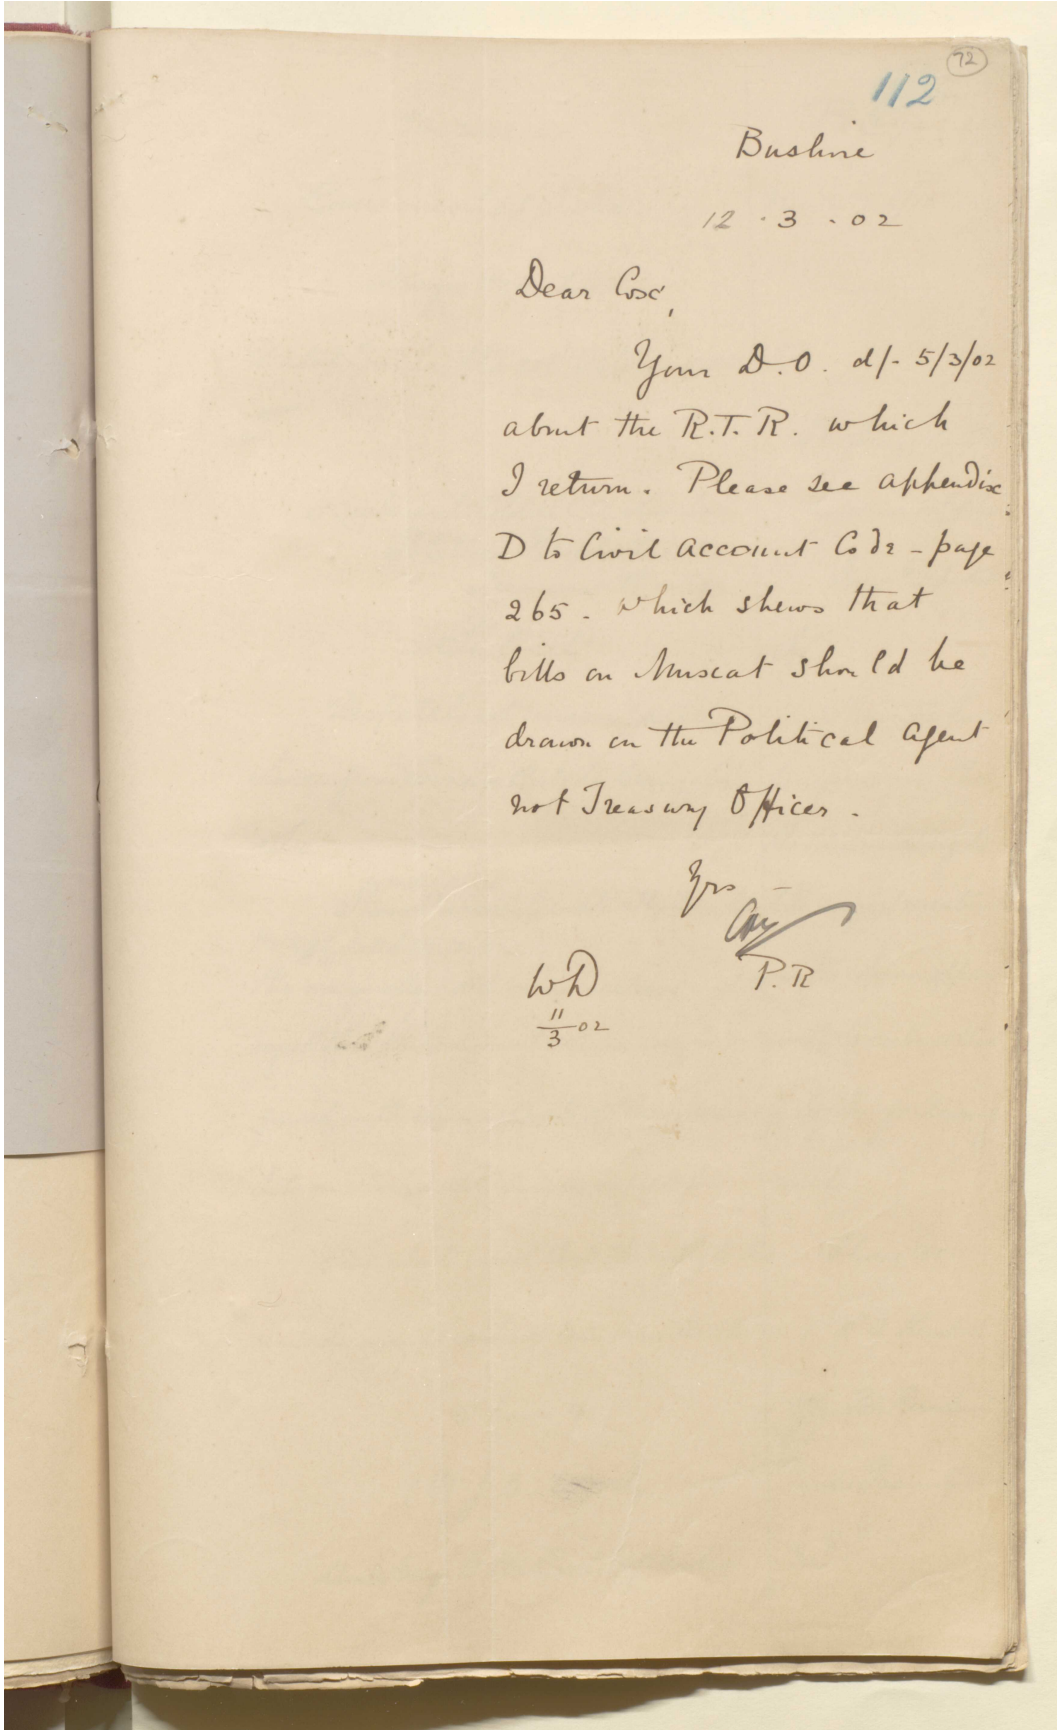 72
112
Bushire
12 . 3 . 02
Dear Cox,
Your D.O. d/- 5/3/02
about the R.T.R. which
I return. Please see appendix
D to Civil Account Code - page
265 - which shews that
bills on Muscat should be
drawn on the Political Agent
not Treasury Officer.
Yrs
P.R
WD
11/3 02